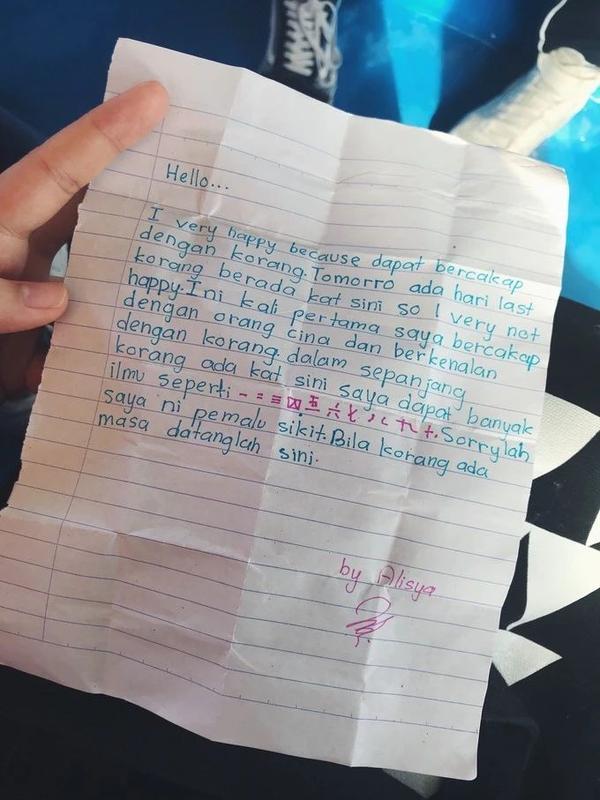 Hello...
I very happy because dapat bercakap
dengan korang. Tomorro ada hari last
korang berada kat sini so I very not
happy. Ini kali pertama saya bercakap
dengan orang cina dan berkenalan
dengan korang. dalam sepanjang
korang ada kat sini saya dapat banyak
ilmu seperti 一 二 三 四 五 六 七 八 九 十. Sorrylah
saya ni pemalu sikit. Bila korang ada
masa datanglah sini.
by Alisya